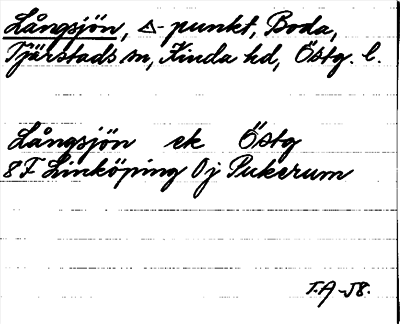 Långsjön, △-punkt, Boda,
Tjärstads sn, Kinda hd, Östg. l.
Långsjön ek Östg
8F Linköping 0j Pukerum
T.A -58.